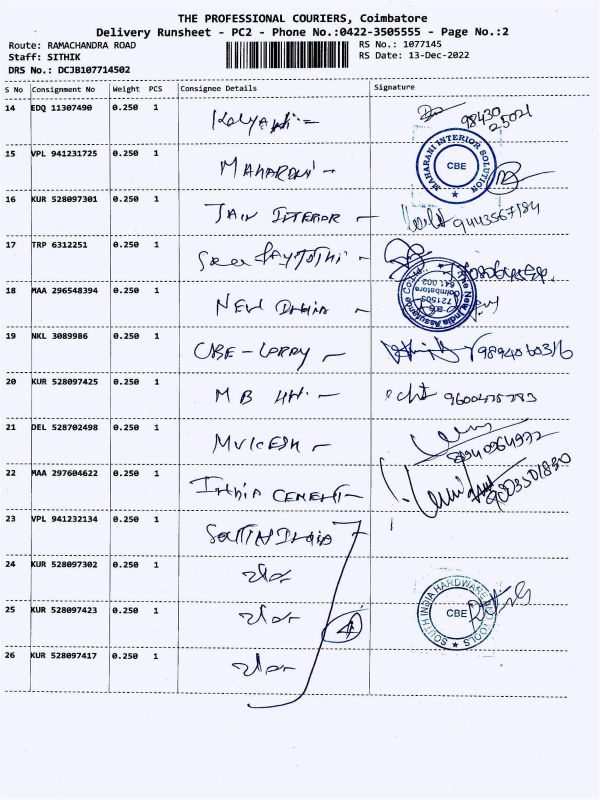 THE PROFESSIONAL COURIERS, Coimbatore
Delivery Runsheet - PC2 - Phone No.:0422-3505555 - Page No.:2
Route: RAMACHANDRA ROAD
Staff: SITHIK
DRS No.: DCJB107714502
RS No.: 1077145
RS Date: 13-Dec-2022
S No Consignment No Weight PCS Consignee Details Signature
14 EDQ 11307490 0.250 1 98430
25021
15 VPL 941231725 0.250 1 MAHARANI - MAHARANI INTERIOR SOLUTION CBE
16 KUR 528097301 0.250 1 JAIN INTERIOR - 9443567184
17 TRP 6312251 0.250 1
18 MAA 296548394 0.250 1 NEW INDIA - The New India Assurance Co.Ltd. 721503 Coimbatore 641 002
19 NKL 3089986 0.250 1 CBE-LORRY - 9894060316
20 KUR 528097425 0.250 1 M B
21 DEL 528702498 0.250 1 MUKESH -
22 MAA 297604622 0.250 1 INDIA CEMENT-
23 VPL 941232134 0.250 1 SOUTH INDIA
24 KUR 528097302 0.250 1
25 KUR 528097423 0.250 1 4 SOUTH INDIA HARDWARE AND TOOLS CBE
26 KUR 528097417 0.250 1